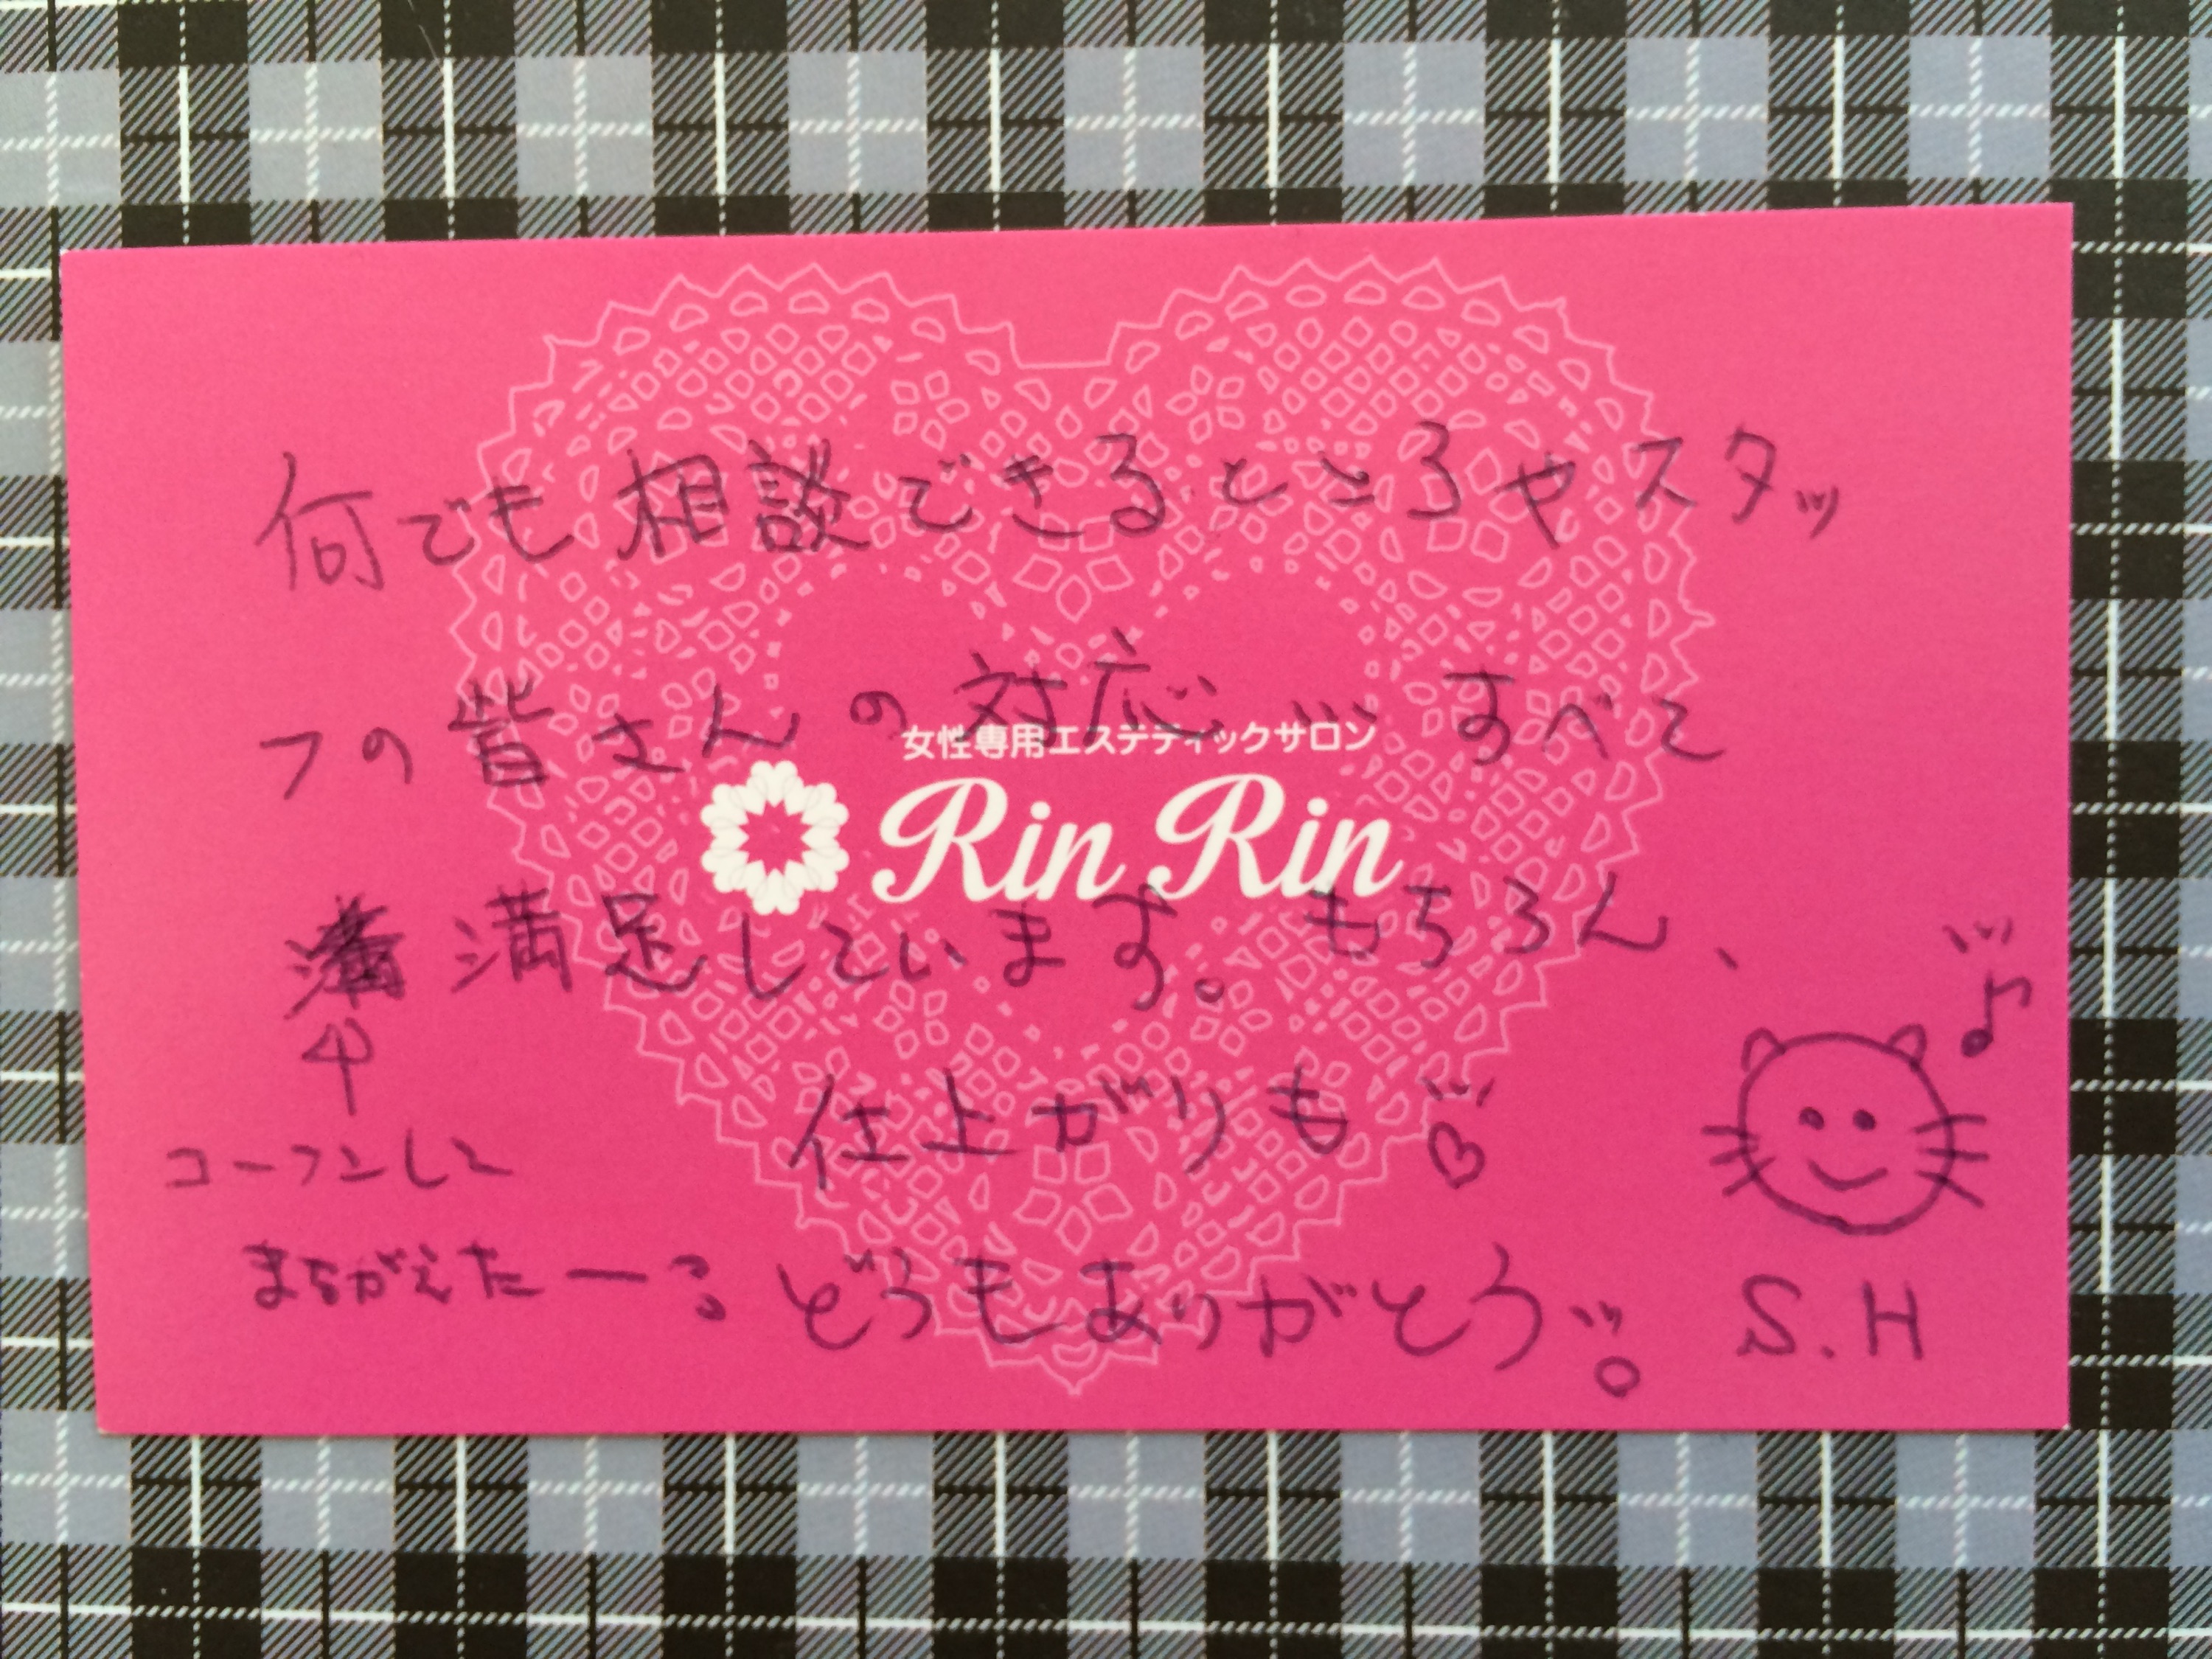 何でも相談できるところやスタッ
フの皆さんの対応… すべて
女性専用エステティックサロン
Rin Rin
満足しています。もちろん、
仕上がりも…♡
コーフンして
まちがえたー
どうもありがとう…。
♪
S.H